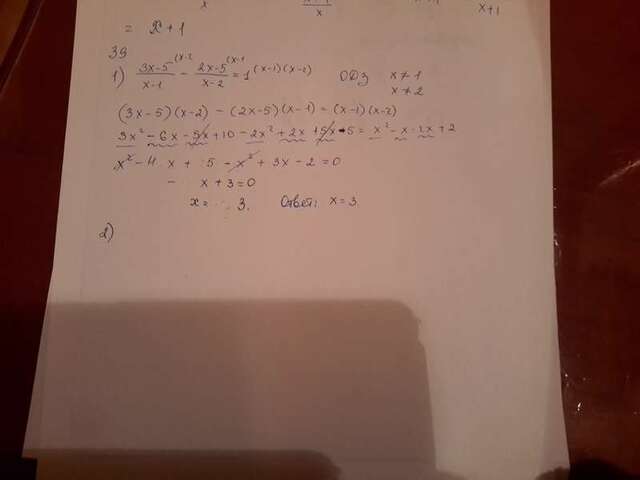 x x x+1
= x+1
39
1) (3x-5)/(x-1) ^(x-2 - (2x-5)/(x-2) ^(x-1 = 1 ^(x-1)(x-2) ОДЗ x≠1
x≠2
(3x-5)(x-2) - (2x-5)(x-1) = (x-1)(x-2)
3x² - 6x - 5x + 10 - 2x² + 2x + 5x - 5 = x² - x - 2x + 2
x² - 4x + 5 - x² + 3x - 2 = 0
- x + 3 = 0
x = 3. Ответ: x = 3.
2)